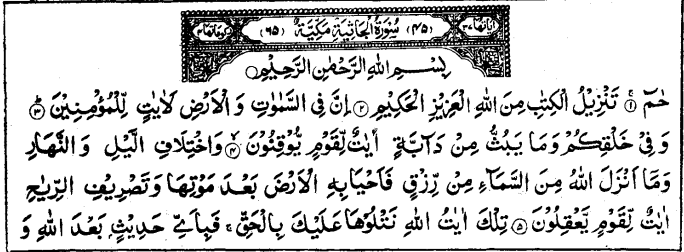 اٰیاتها ۳۷ (۴۵) سُوْرَةُ الْجَاثِيَةِ مَكِّيَّةٌ (۶۵) رکوعاتها ۴
بِسْمِ اللهِ الرَّحْمٰنِ الرَّحِيْمِ
حٰمٓ ۱ تَنْزِيْلُ الْكِتٰبِ مِنَ اللهِ الْعَزِيْزِ الْحَكِيْمِ ۲ اِنَّ فِى السَّمٰوٰتِ وَ الْاَرْضِ لَاٰيٰتٍ لِّلْمُؤْمِنِيْنَ ۳
وَ فِىْ خَلْقِكُمْ وَ مَا يَبُثُّ مِنْ دَآبَّةٍ اٰيٰتٌ لِّقَوْمٍ يُّوْقِنُوْنَ ۴ وَ اخْتِلَافِ الَّيْلِ وَ النَّهَارِ
وَ مَآ اَنْزَلَ اللهُ مِنَ السَّمَآءِ مِنْ رِّزْقٍ فَاَحْيَا بِهِ الْاَرْضَ بَعْدَ مَوْتِهَا وَ تَصْرِيْفِ الرِّيٰحِ
اٰيٰتٌ لِّقَوْمٍ يَّعْقِلُوْنَ ۵ تِلْكَ اٰيٰتُ اللهِ نَتْلُوْهَا عَلَيْكَ بِالْحَقِّ ۚ فَبِاَىِّ حَدِيْثٍۢ بَعْدَ اللهِ وَ